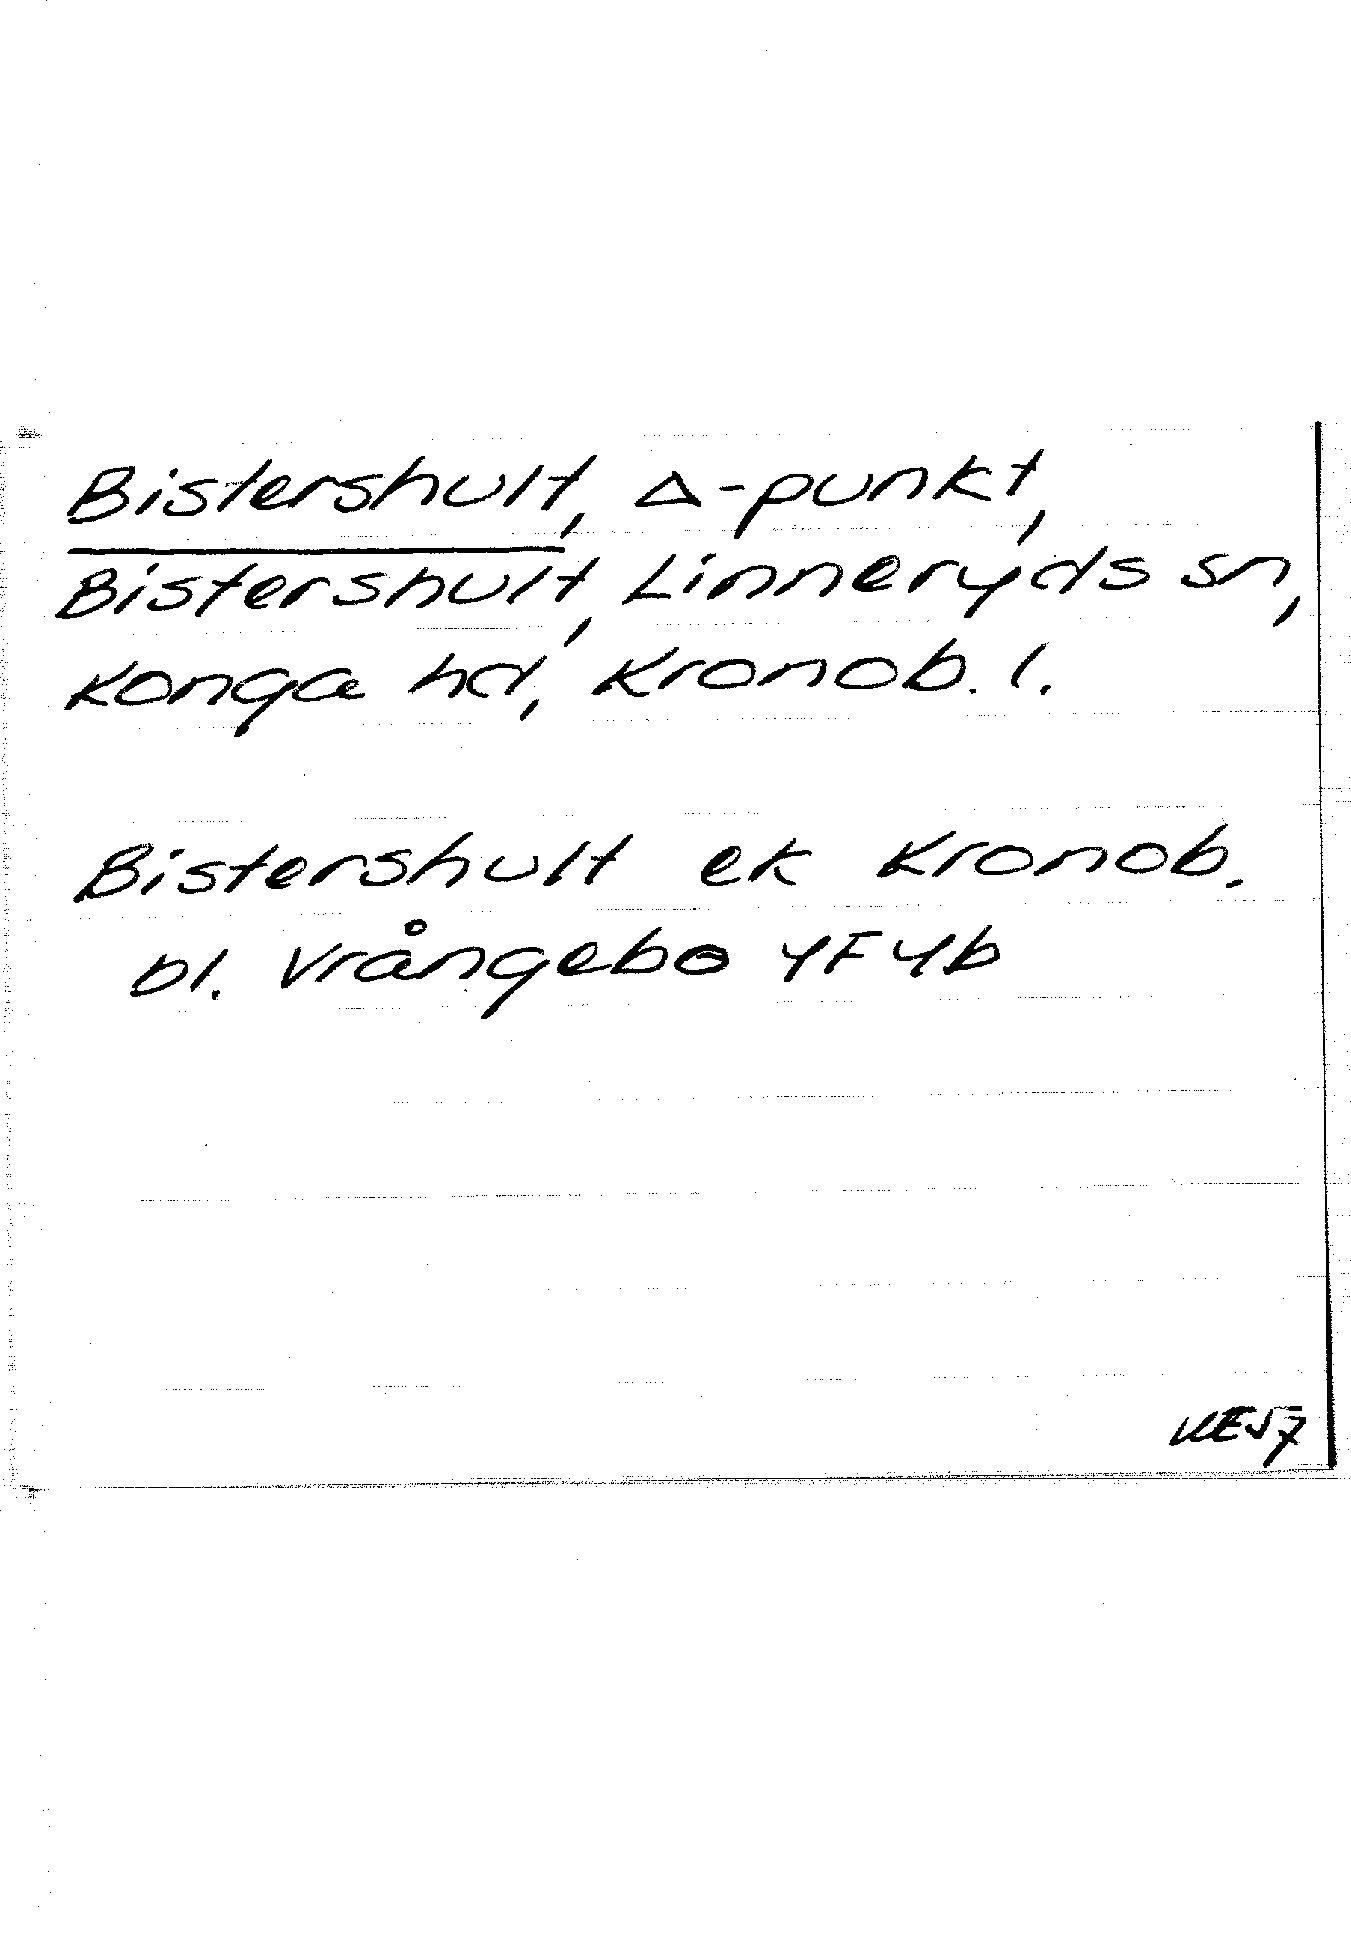 Bistershult, Δ-punkt,
Bistershult, Linneryds sn,
Konga hd, Kronob. l.
Bistershult ek Kronob.
bl. Vrångebo 4F4b